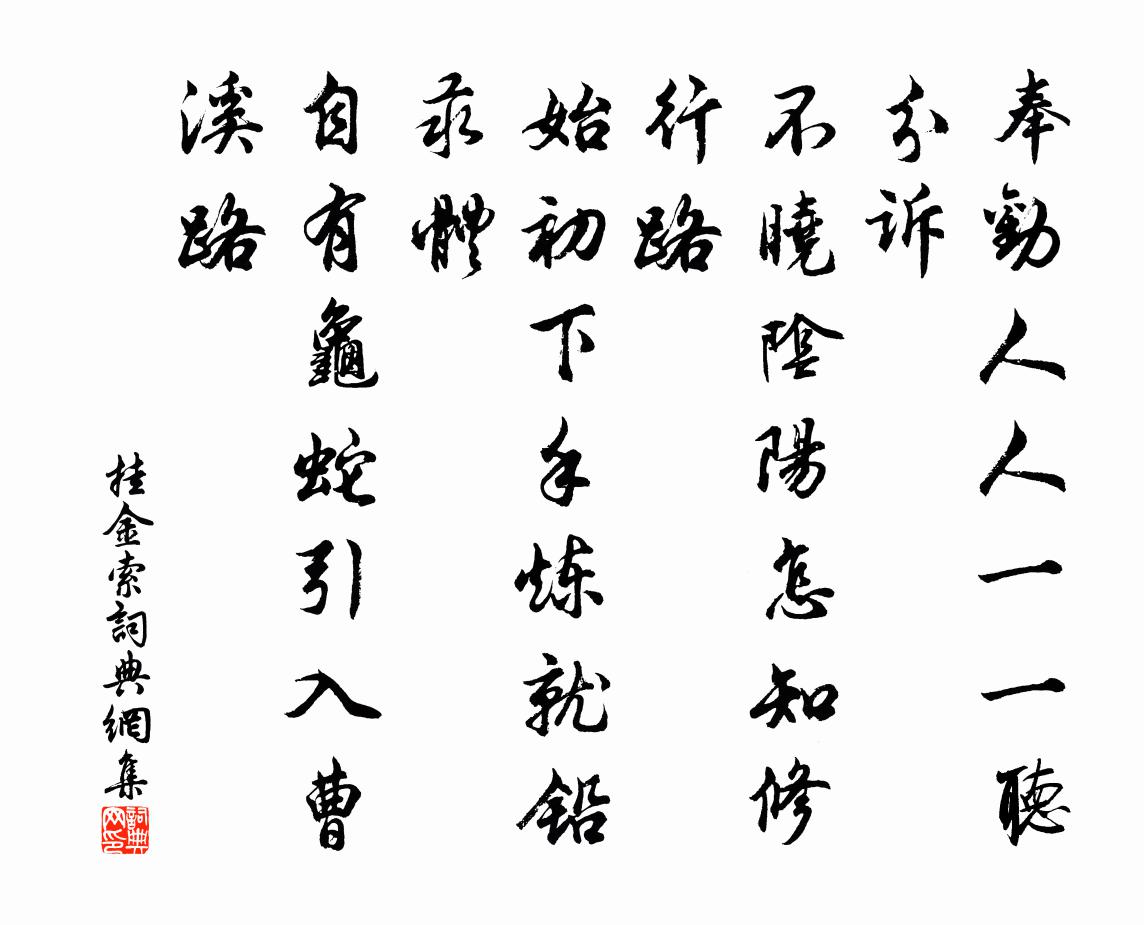 奉勸人人一一聽
分訴
不曉陰陽怎知修
行路
始初下手炼就鉛
汞體
自有龜蛇引入曹
溪路
挂金索詞典網集
詞典网印